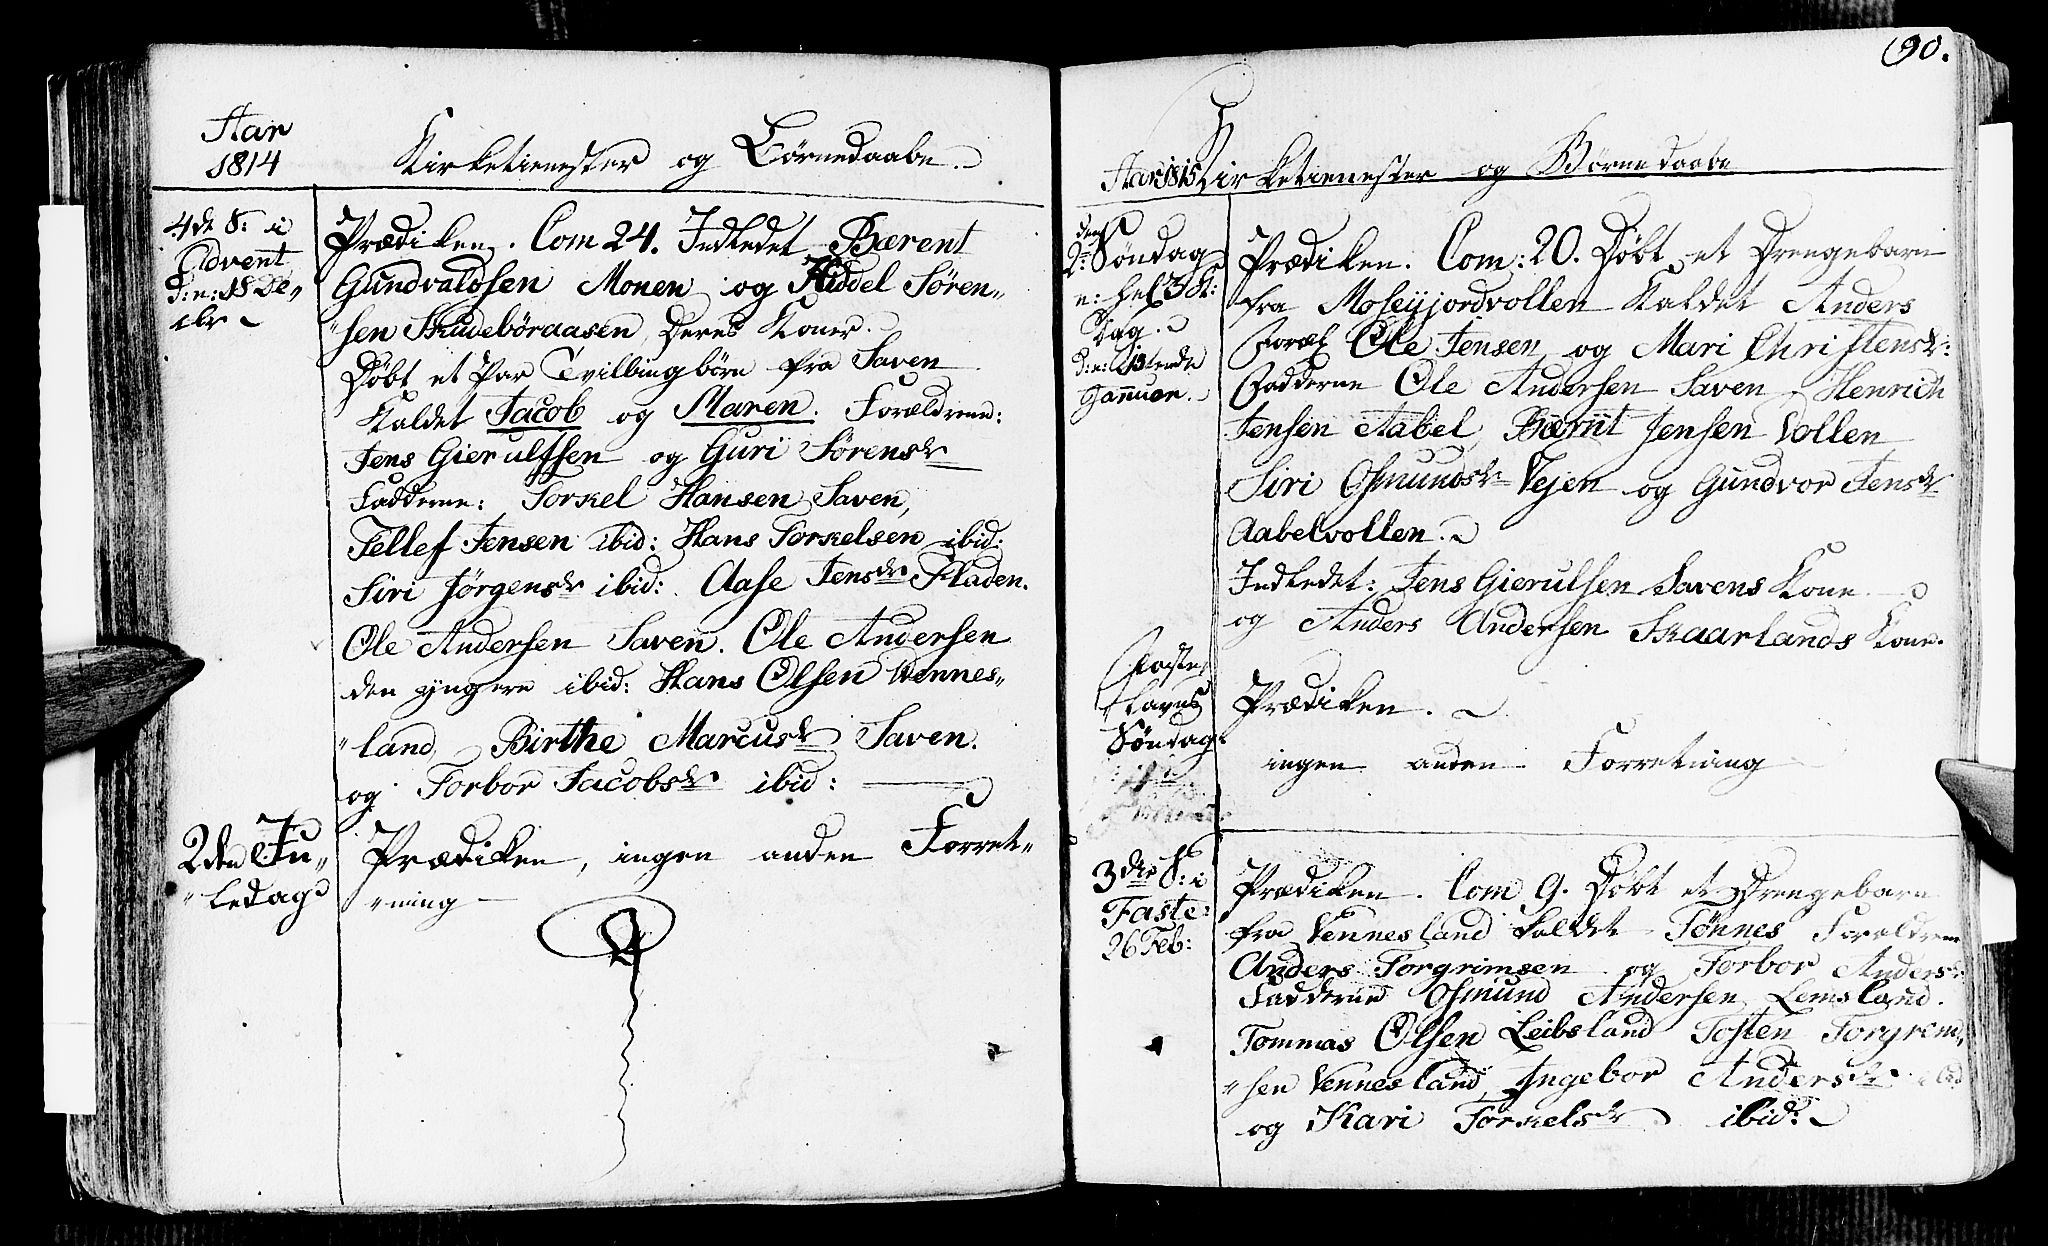 Aar
1814
Kirketienester og Børnedaabe.
4de S: i
Advent
d: 18 De,,
cbr
Prædiken. Com 24. Indledet Bærent
Gundvaldsen Monen og Kiddel Søren,,
"sen Skudeböraasen, Deres Koner.
Døbt et Par Tvillingbørn fra Saven
Kaldet Jacob og Maren. Forældrene:
Jens Gierulfsen og Guri Sørensdr
Fadderne: Torkel Hansen Saven,
Tellef Jensen ibid: Hans Torkelsen ibid:
Siri Jörgensdr ibid: Aase Jensdr Fladen.
Ole Andersen Saven. Ole Andersen
den yngere ibid: Hans Olsen Vennes,,
"land, Birthe Marcusdr Saven.
og Torbor Jacobsdr ibid:
2den Ju,,
"ledag
Prædiken, ingen anden Forret,,
"ning
90.
Aar 1815 Kirketienester og Børnedaabe
den
2: Søndag
e: Hel 3 K:
Dag.
d: 15tende
Januar.
Prædiken. Com: 20. Døbt et Drengebarn
fra Moseyjordvollen Kaldet Anders
Foræl Ole Jensen og Mari Christensdr:
Fadderne Ole Andersen Saven, Henrich
Jensen Aabel, Bærnt Jensen Vollen
Siri Osmundsdr Vejen og Gundvor Jensdr
Aabelvollen.
Indledet: Jens Gierulsen Savens Kone
og Anders Andersen Skaarlands Kone.
Faste,
"lavns
Søndag
Prædiken.
ingen anden Forretning
3die S: i
Faste:
26 Feb:
Prædiken. Com 9. Døbt et Drengebarn
fra Vennesland kaldet Tønnes Forældrene
Anders Torgrimsen og Torbor Andersdr
Fadderne Osmund Andersen Lemsland.
Tommas Olsen Leibsland Tosten Torgrem,,
"sen Vennesland, Ingebor Andersdr ibid
og Kari Torkelsdr ibid: